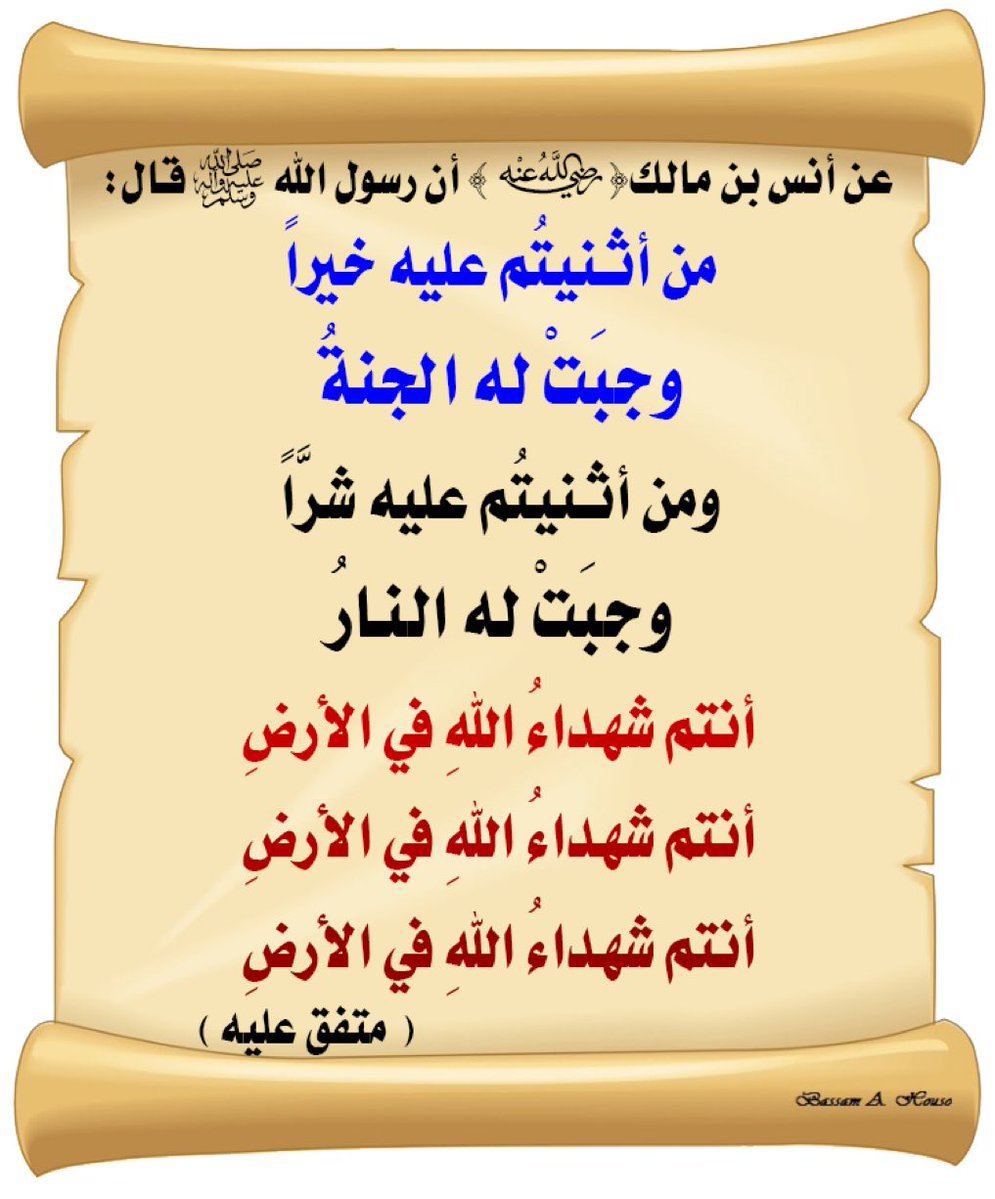 عن أنس بن مالك ﴿ رضي الله عنه ﴾ أن رسول الله ﷺ قال:
من أثنيتُم عليه خيراً
وجبَتْ له الجنةُ
ومن أثنيتُم عليه شرَّاً
وجبَتْ له النارُ
أنتم شهداءُ اللهِ في الأرضِ
أنتم شهداءُ اللهِ في الأرضِ
أنتم شهداءُ اللهِ في الأرضِ
( متفق عليه )
Bassam A. Houso